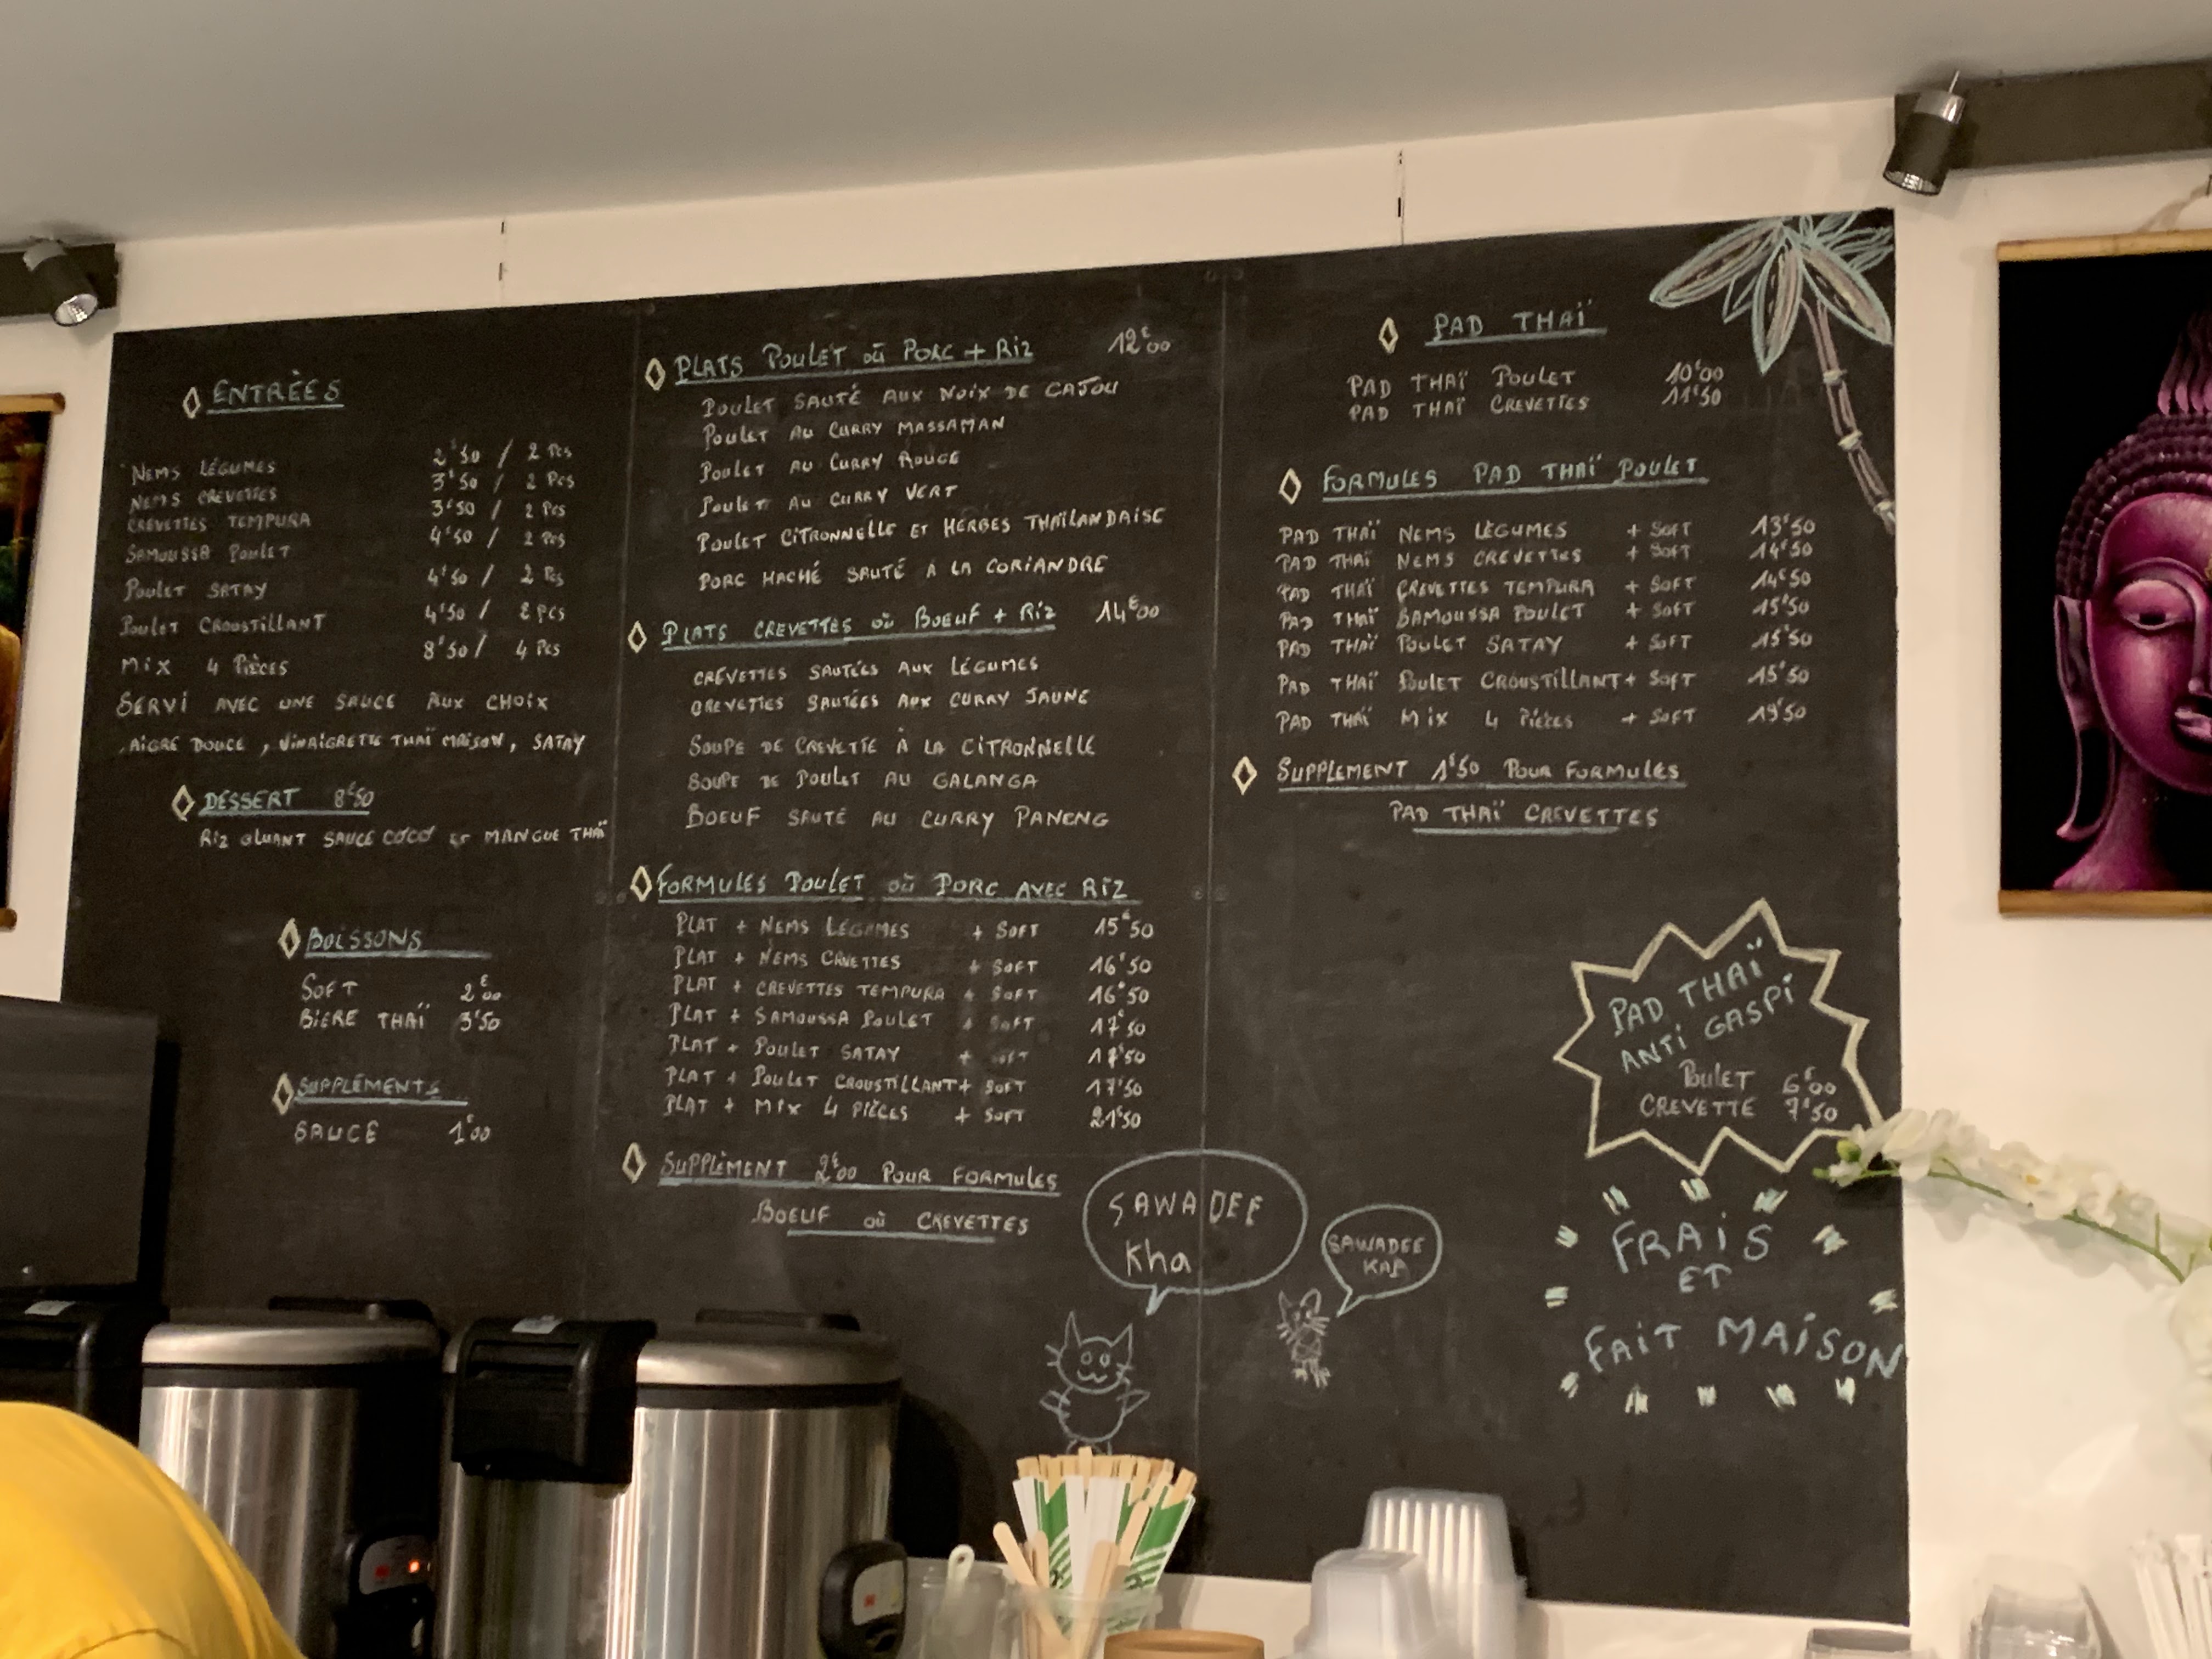 ENTRÈES
NEMS LÉGUMES 2€50 / 2 Pcs
NEMS CREVETTES 3€50 / 2 Pcs
CREVETTES TEMPURA 3€50 / 2 Pcs
SAMOUSSA POULET 4€50 / 2 Pcs
POULET SATAY 4€50 / 2 Pcs
POULET CROUSTILLANT 4€50 / 2 Pcs
MIX 4 PIÈCES 8€50 / 4 Pcs
SERVI AVEC UNE SAUCE AUX CHOIX
AIGRE DOUCE, VINAIGRETTE THAÏ MAISON, SATAY
DESSERT 8€50
RIZ GLUANT SAUCE COCO ET MANGUE THAÏ
BOISSONS
SOFT 2€00
BIERE THAÏ 3€50
SUPPLÉMENTS
SAUCE 1€00
PLATS POULET OÙ PORC + RIZ 12€00
POULET SAUTÉ AUX NOIX DE CAJOU
POULET AU CURRY MASSAMAN
POULET AU CURRY ROUGE
POULET AU CURRY VERT
POULET CITRONNELLE ET HERBES THAÏLANDAISE
PORC HACHÉ SAUTÉ À LA CORIANDRE
PLATS CREVETTES OÙ BOEUF + RIZ 14€00
CREVETTES SAUTÉES AUX LÉGUMES
CREVETTES SAUTÉES AUX CURRY JAUNE
SOUPE DE CREVETTE À LA CITRONNELLE
SOUPE DE POULET AU GALANGA
BOEUF SAUTÉ AU CURRY PANENG
FORMULES POULET OÙ PORC AVEC RIZ
PLAT + NEMS LÉGUMES + SOFT 15€50
PLAT + NEMS CRVETTES + SOFT 16€50
PLAT + CREVETTES TEMPURA + SOFT 16€50
PLAT + SAMOUSSA POULET + SOFT 17€50
PLAT + POULET SATAY + SOFT 17€50
PLAT + POULET CROUSTILLANT + SOFT 17€50
PLAT + MIX 4 PIÈCES + SOFT 21€50
SUPPLÈMENT 2€00 POUR FORMULES
BOEUF OÙ CREVETTES
SAWADEE
Kha
SAWADEE
KAP
PAD THAÏ
PAD THAÏ POULET 10€00
PAD THAÏ CREVETTES 11€50
FORMULES PAD THAÏ POULET
PAD THAÏ NEMS LÈGUMES + SOFT 13€50
PAD THAÏ NEMS CREVETTES + SOFT 14€50
PAD THAÏ CREVETTES TEMPURA + SOFT 14€50
PAD THAÏ SAMOUSSA POULET + SOFT 15€50
PAD THAÏ POULET SATAY + SOFT 15€50
PAD THAÏ POULET CROUSTILLANT + SOFT 15€50
PAD THAÏ MIX 4 PIÈCES + SOFT 19€50
SUPPLEMENT 1€50 POUR FORMULES
PAD THAÏ CREVETTES
PAD THAÏ
ANTI GASPI
POULET 6€00
CREVETTE 7€50
FRAIS
ET
FAIT MAISON